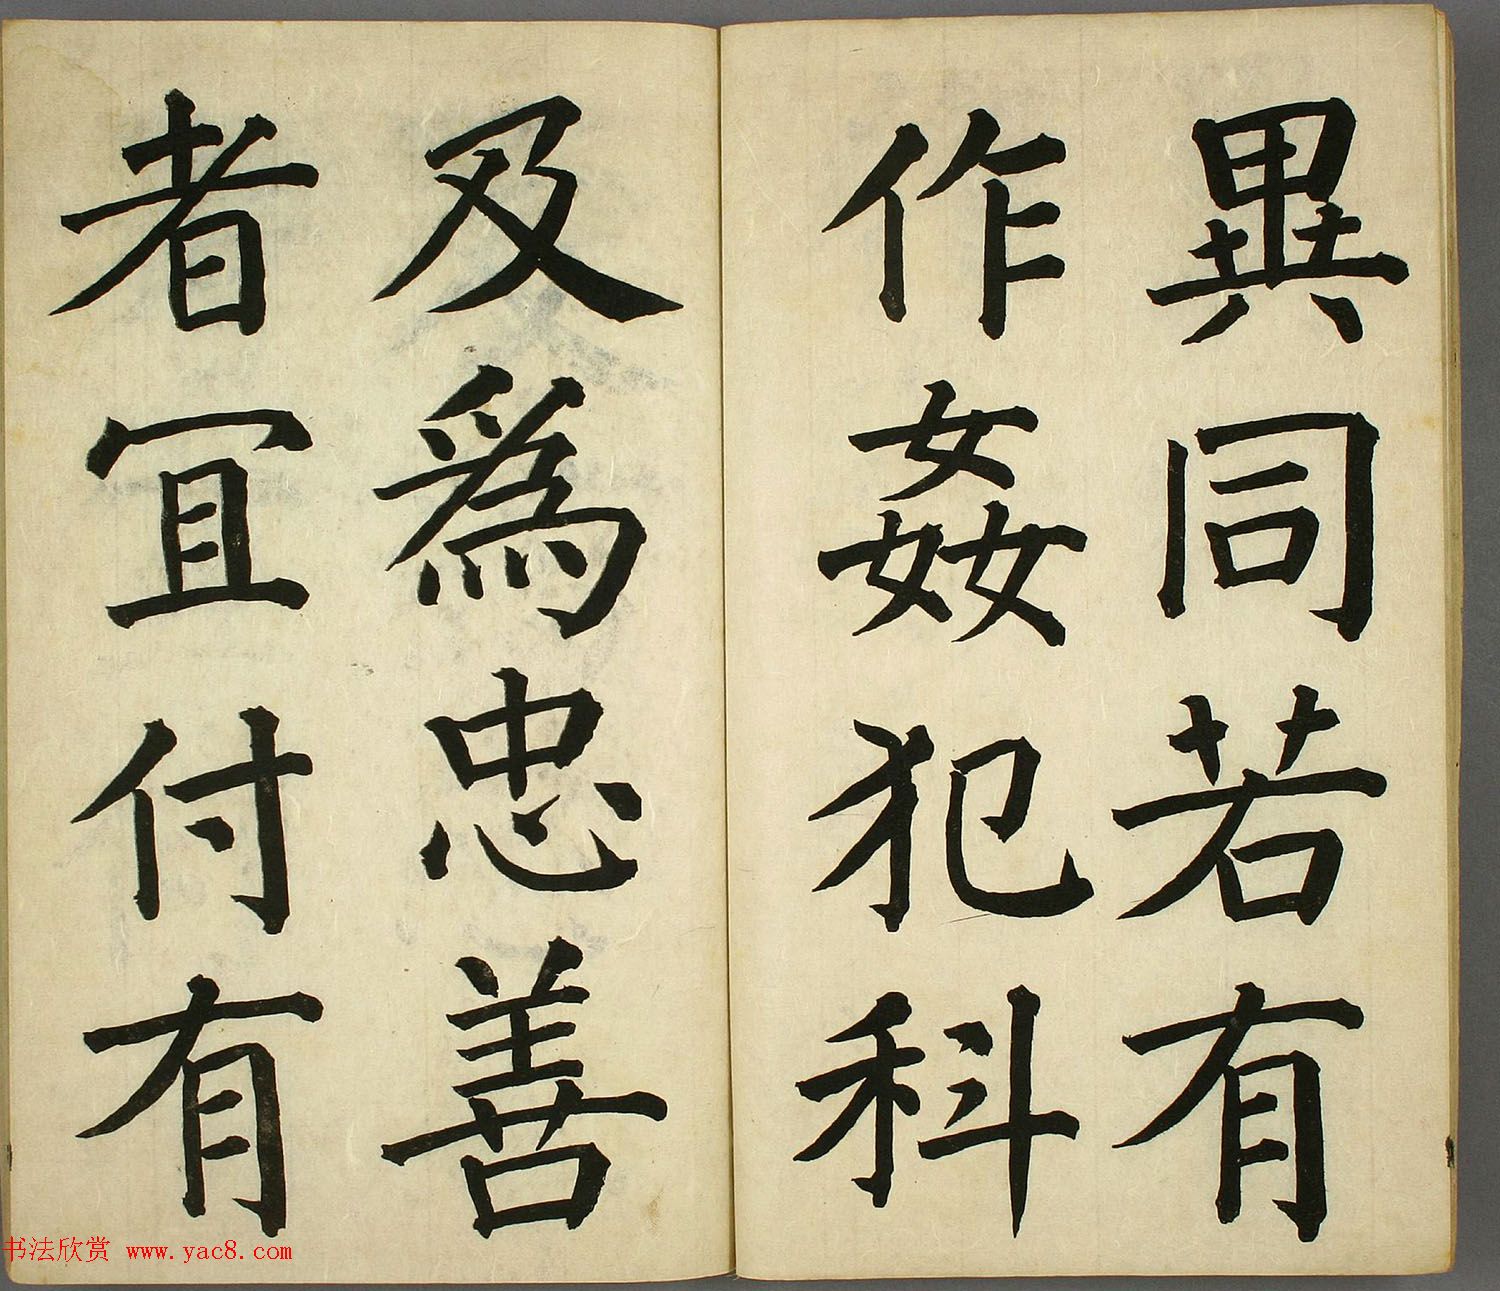 異同若有
作姦犯科
及爲忠善
者冝付有
书法欣赏 www.yac8.com